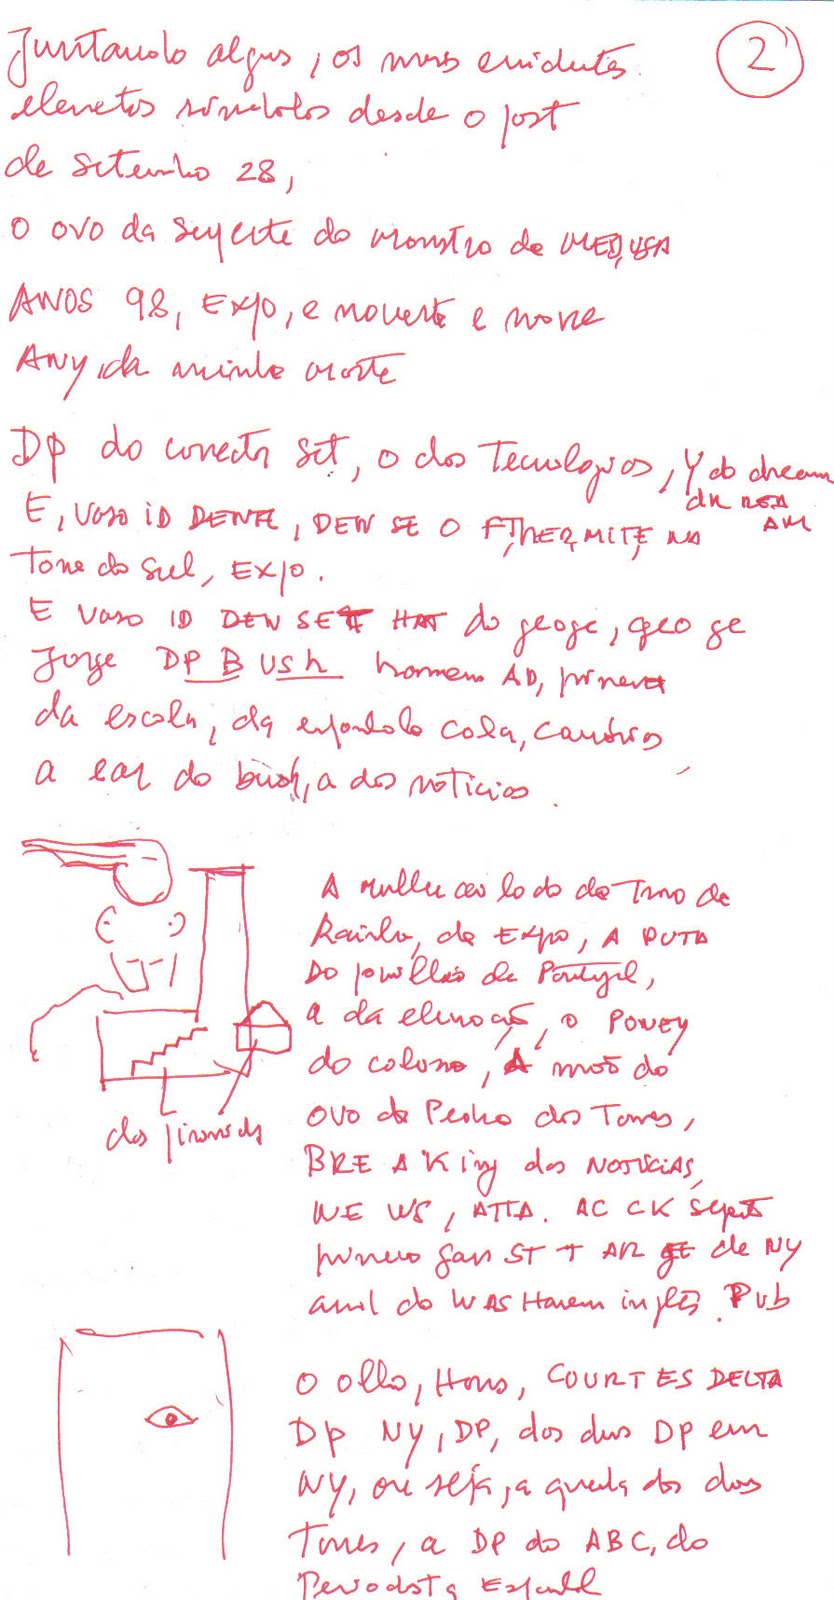 Juntando alguns, os mais evidentes
2
elementos símbolos desde o post
de setembro 28,
O OVO da serpente do monstro de MEDUSA
ANOS 98, EXPO, e noventa e nove
ANY, da minha morte
DP do conector set, o dos Tecnologicos, Y ab dream
E, vaso ID DENTE, DEN SE O F THERMITE NA
Torre do sul, EXPO.
E vaso ID DEN SE HAT do geoge, geo ge
Jorge DP B Ush homem AD, primeira
da escola, da espanhola cola,
a ear do bush, a das noticias
A mulher ao lado do Trono da
Rainha, da EXPO, A PUTA
DO pavilhão de Portugal,
a da elevação, o PONEY
do coluna, A mão do
OVO de Pedro das Torres,
BRE A King das NOTICIAS,
NE WS, ATTA. AC CK
primeiro gan ST T AR GE de NY
anil do WAS Harem inglês. Pub
das piramides
O olho, Horus, COURT ES DELTA
DP NY, DP, dos dois DP em
NY, ou seja, a queda das duas
Torres, a DP do ABC, do
Periodista Espanhol